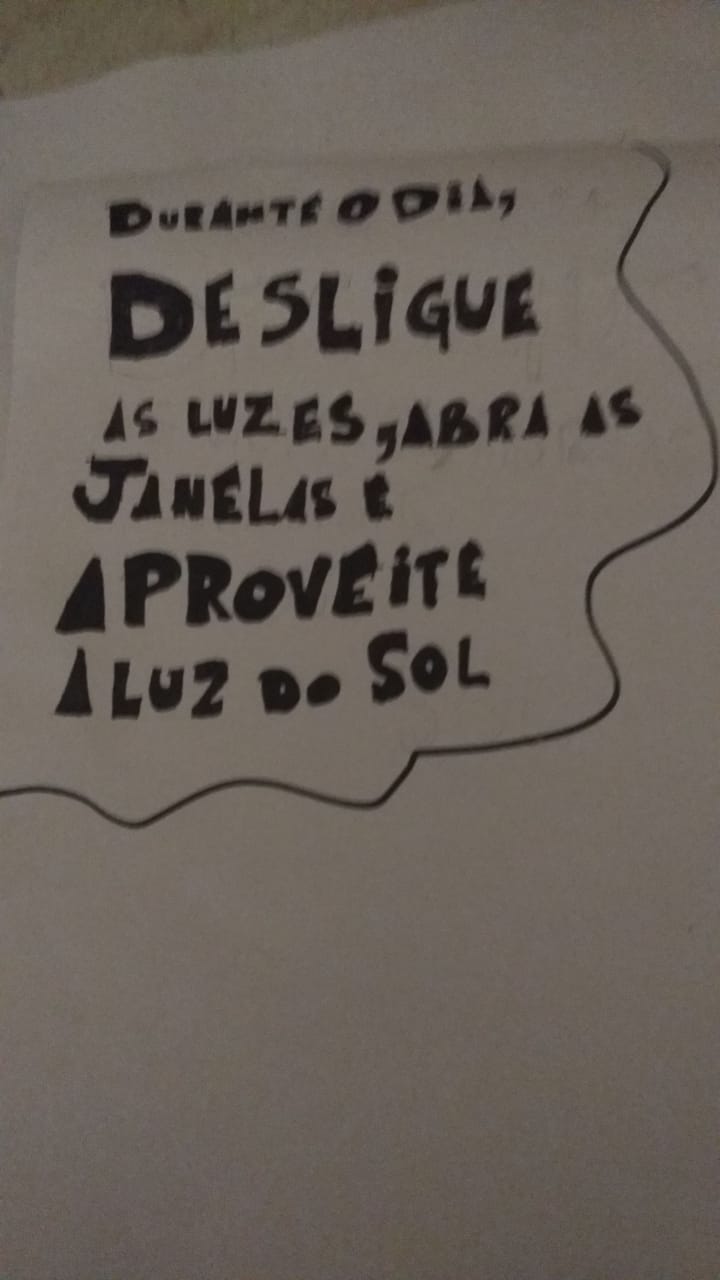 DURANTE O DIA,
DESLIGUE
AS LUZES, ABRA AS
JANELAS E
APROVEITE
A LUZ DO SOL